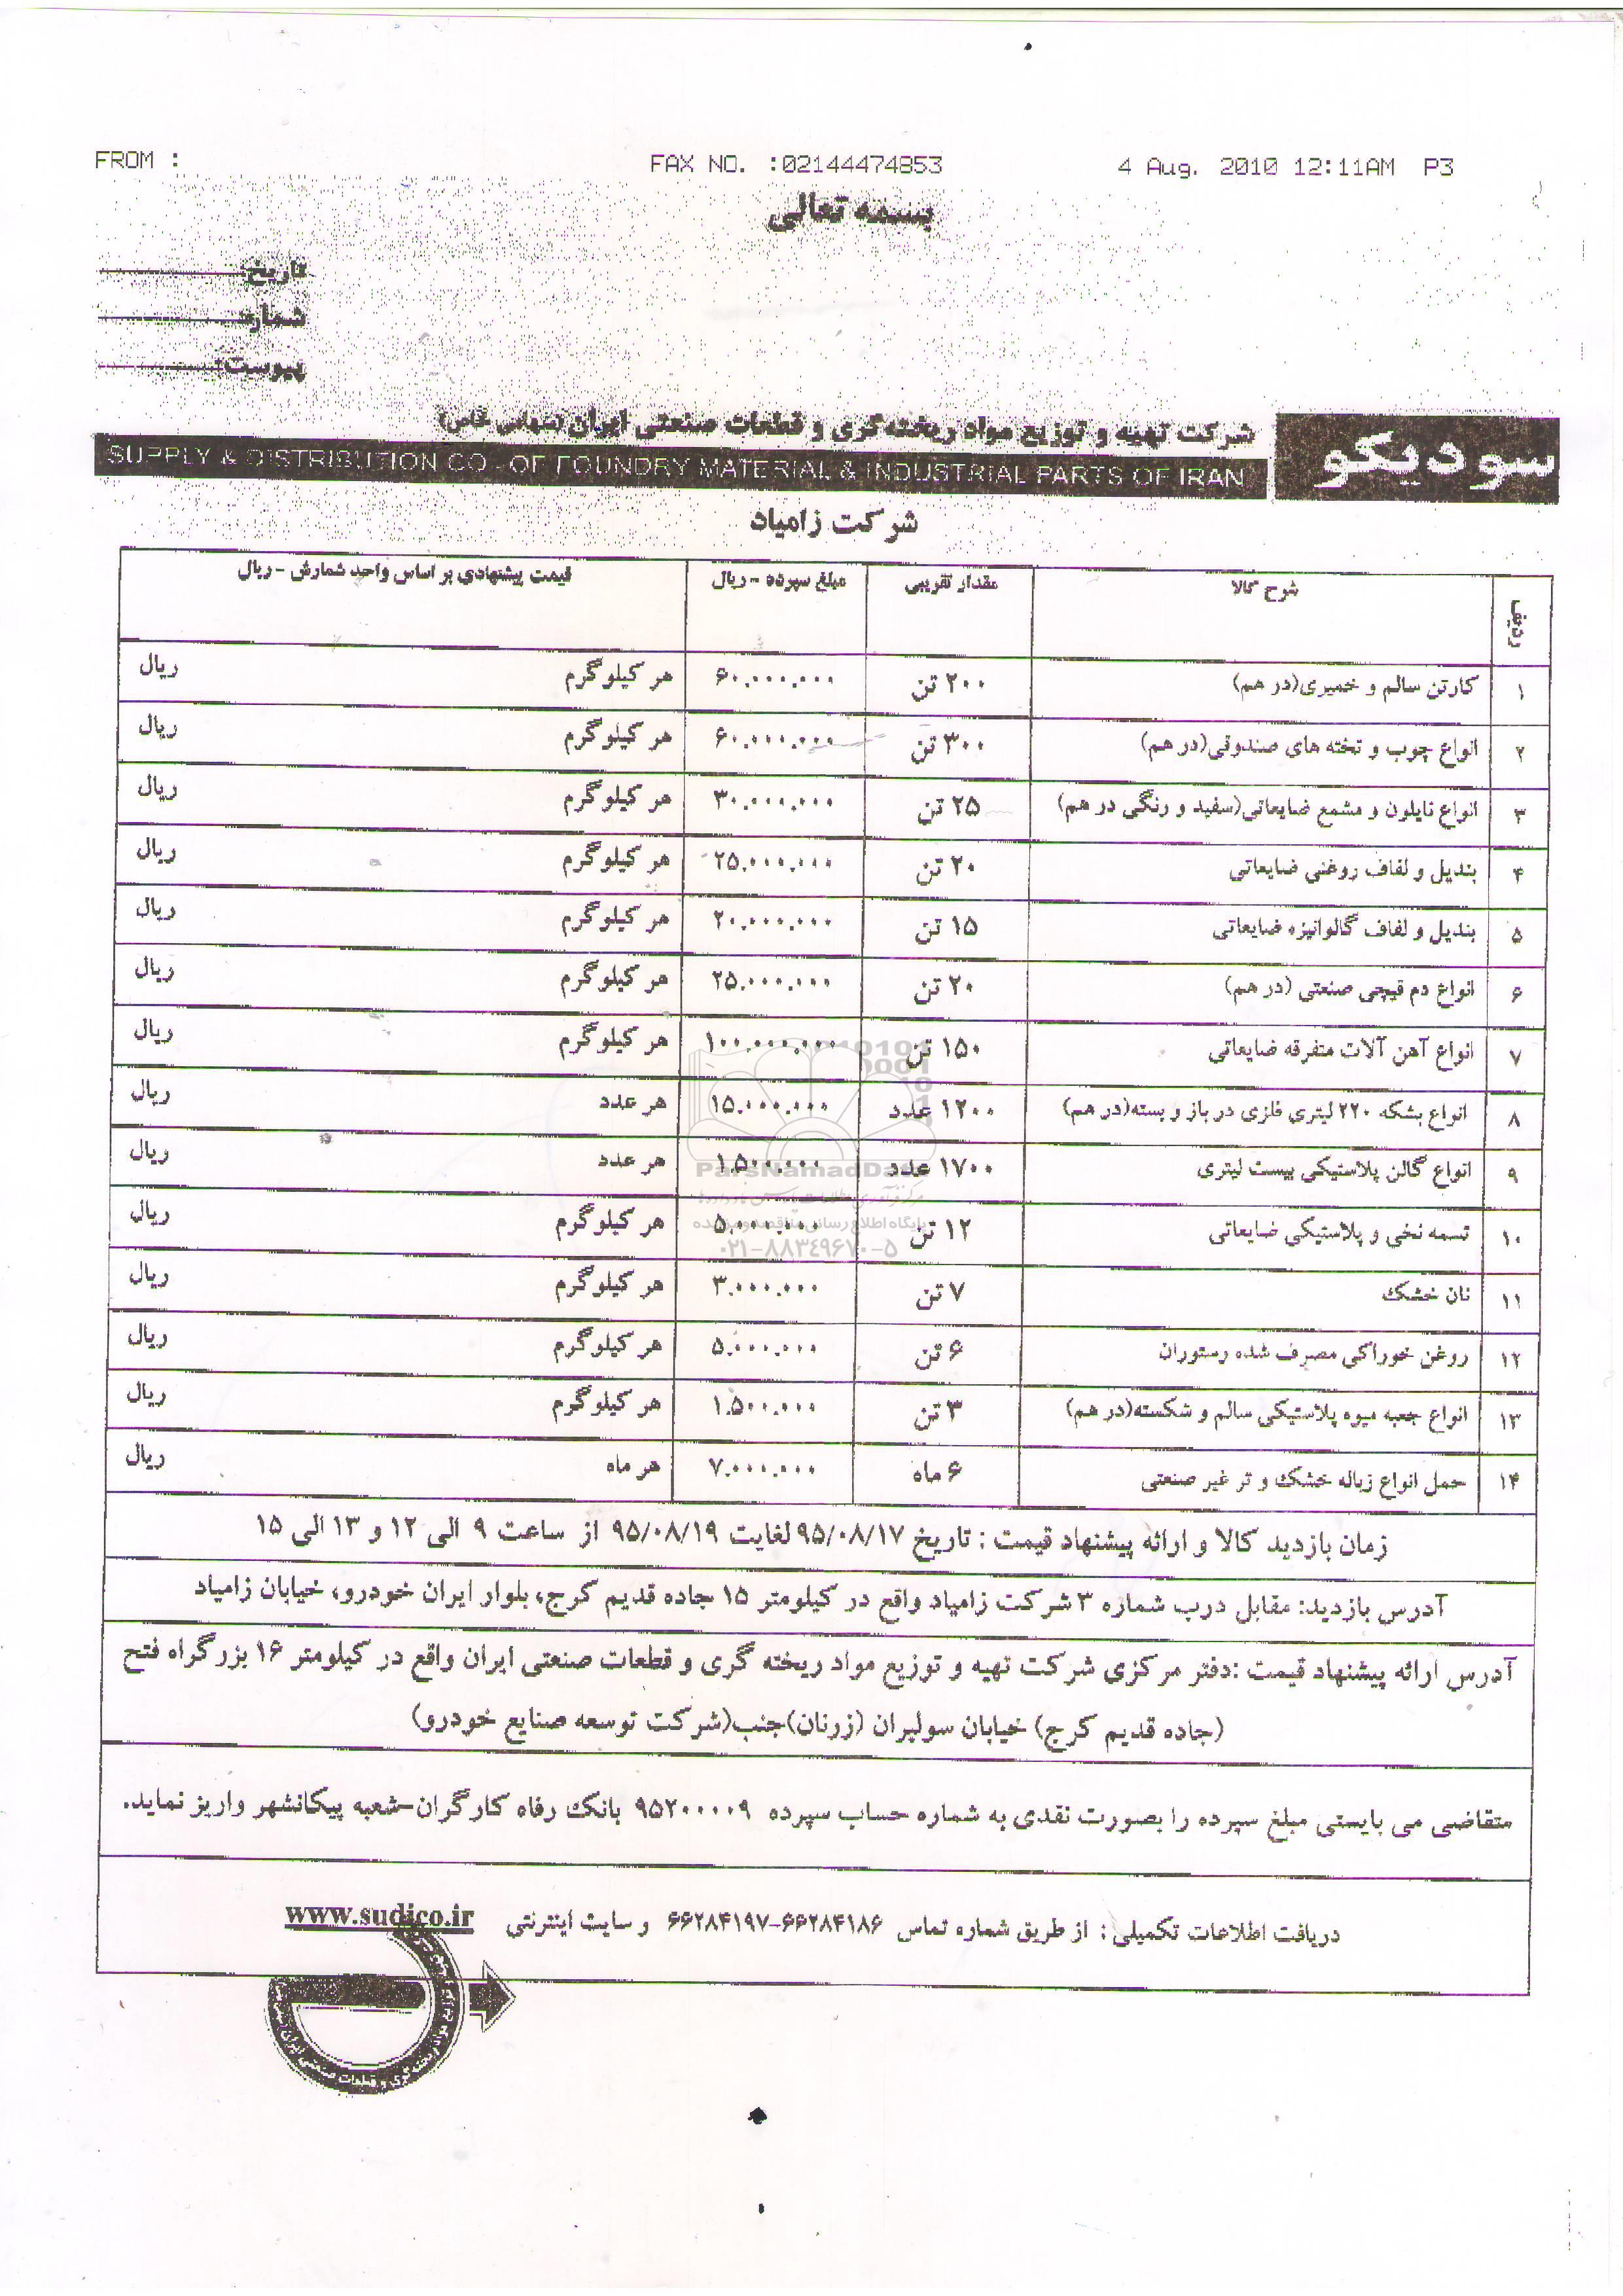 FROM :
FAX NO. :02144474853
4 Aug. 2010 12:11AM P3
بسمه تعالی
تاریخ:
شماره:
پیوست:
سودیکو
شرکت تهیه و توزیع مواد ریخته گری و قطعات صنعتی ایران (سهامی خاص)
SUPPLY & DISTRIBUTION CO. OF FOUNDRY MATERIAL & INDUSTRIAL PARTS OF IRAN
شرکت زامیاد
ردیف شرح کالا مقدار تقریبی مبلغ سپرده - ریال قیمت پیشنهادی بر اساس واحد شمارش - ریال
۱ کارتن سالم و خمیری(در هم) ۲۰۰ تن ۶۰.۰۰۰.۰۰۰ هر کیلوگرم ریال
۲ انواع چوب و تخته های صندوقی(در هم) ۳۰۰ تن ۶۰.۰۰۰.۰۰۰ هر کیلوگرم ریال
۳ انواع نایلون و مشمع ضایعاتی(سفید و رنگی در هم) ۲۵ تن ۳۰.۰۰۰.۰۰۰ هر کیلوگرم ریال
۴ بندیل و لفاف روغنی ضایعاتی ۲۰ تن ۲۵.۰۰۰.۰۰۰ هر کیلوگرم ریال
۵ بندیل و لفاف گالوانیزه ضایعاتی ۱۵ تن ۲۰.۰۰۰.۰۰۰ هر کیلوگرم ریال
۶ انواع دم قیچی صنعتی (در هم) ۲۰ تن ۲۵.۰۰۰.۰۰۰ هر کیلوگرم ریال
۷ انواع آهن آلات متفرقه ضایعاتی ۱۵۰ تن ۱۰۰.۰۰۰.۰۰۰ هر کیلوگرم ریال
۸ انواع بشکه ۲۲۰ لیتری فلزی در باز و بسته(در هم) ۱۲۰۰ عدد ۱۵.۰۰۰.۰۰۰ هر عدد ریال
۹ انواع گالن پلاستیکی بیست لیتری ۱۷۰۰ عدد ۱.۵۰۰.۰۰۰ هر عدد ریال
۱۰ تسمه نخی و پلاستیکی ضایعاتی ۱۲ تن ۵.۰۰۰.۰۰۰ هر کیلوگرم ریال
۱۱ نان خشک ۷ تن ۳.۰۰۰.۰۰۰ هر کیلوگرم ریال
۱۲ روغن خوراکی مصرف شده رستوران ۶ تن ۵.۰۰۰.۰۰۰ هر کیلوگرم ریال
۱۳ انواع جعبه میوه پلاستیکی سالم و شکسته(در هم) ۳ تن ۱.۵۰۰.۰۰۰ هر کیلوگرم ریال
۱۴ حمل انواع زباله خشک و تر غیر صنعتی ۶ ماه ۷.۰۰۰.۰۰۰ هر ماه ریال
ParsNamadData
پایگاه اطلاع رسانی مناقصه و مزایده
۰۲۱-۸۸۳۴۹۶۷۰-۵
زمان بازدید کالا و ارائه پیشنهاد قیمت : تاریخ ۹۵/۰۸/۱۷ لغایت ۹۵/۰۸/۱۹ از ساعت ۹ الی ۱۲ و ۱۳ الی ۱۵
آدرس بازدید: مقابل درب شماره ۳ شرکت زامیاد واقع در کیلومتر ۱۵ جاده قدیم کرج، بلوار ایران خودرو، خیابان زامیاد
آدرس ارائه پیشنهاد قیمت :دفتر مرکزی شرکت تهیه و توزیع مواد ریخته گری و قطعات صنعتی ایران واقع در کیلومتر ۱۶ بزرگراه فتح
(جاده قدیم کرج) خیابان سولیران (زرنان)جنب(شرکت توسعه صنایع خودرو)
متقاضی می بایستی مبلغ سپرده را بصورت نقدی به شماره حساب سپرده ۹۵۲۰۰۰۰۹ بانک رفاه کارگران-شعبه پیکانشهر واریز نماید.
دریافت اطلاعات تکمیلی : از طریق شماره تماس ۶۶۲۸۴۱۸۶-۶۶۲۸۴۱۹۷ و سایت اینترنتی www.sudico.ir